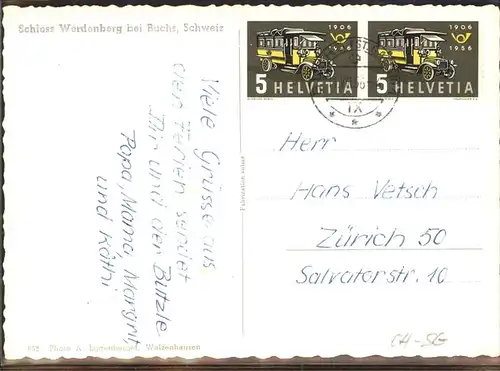 Schloss Werdenberg bei Buchs, Schweiz
Viele Grüsse aus
den Ferien sendet
Dir und der Butzle
Papa, Mama, Margrit,
und Käthi
1906
1956
5 HELVETIA
1906
1956
5 HELVETIA
IX
Herr
Hans Vetsch
Zürich 50
Salvatorstr. 10
CH-SG
Photo A.